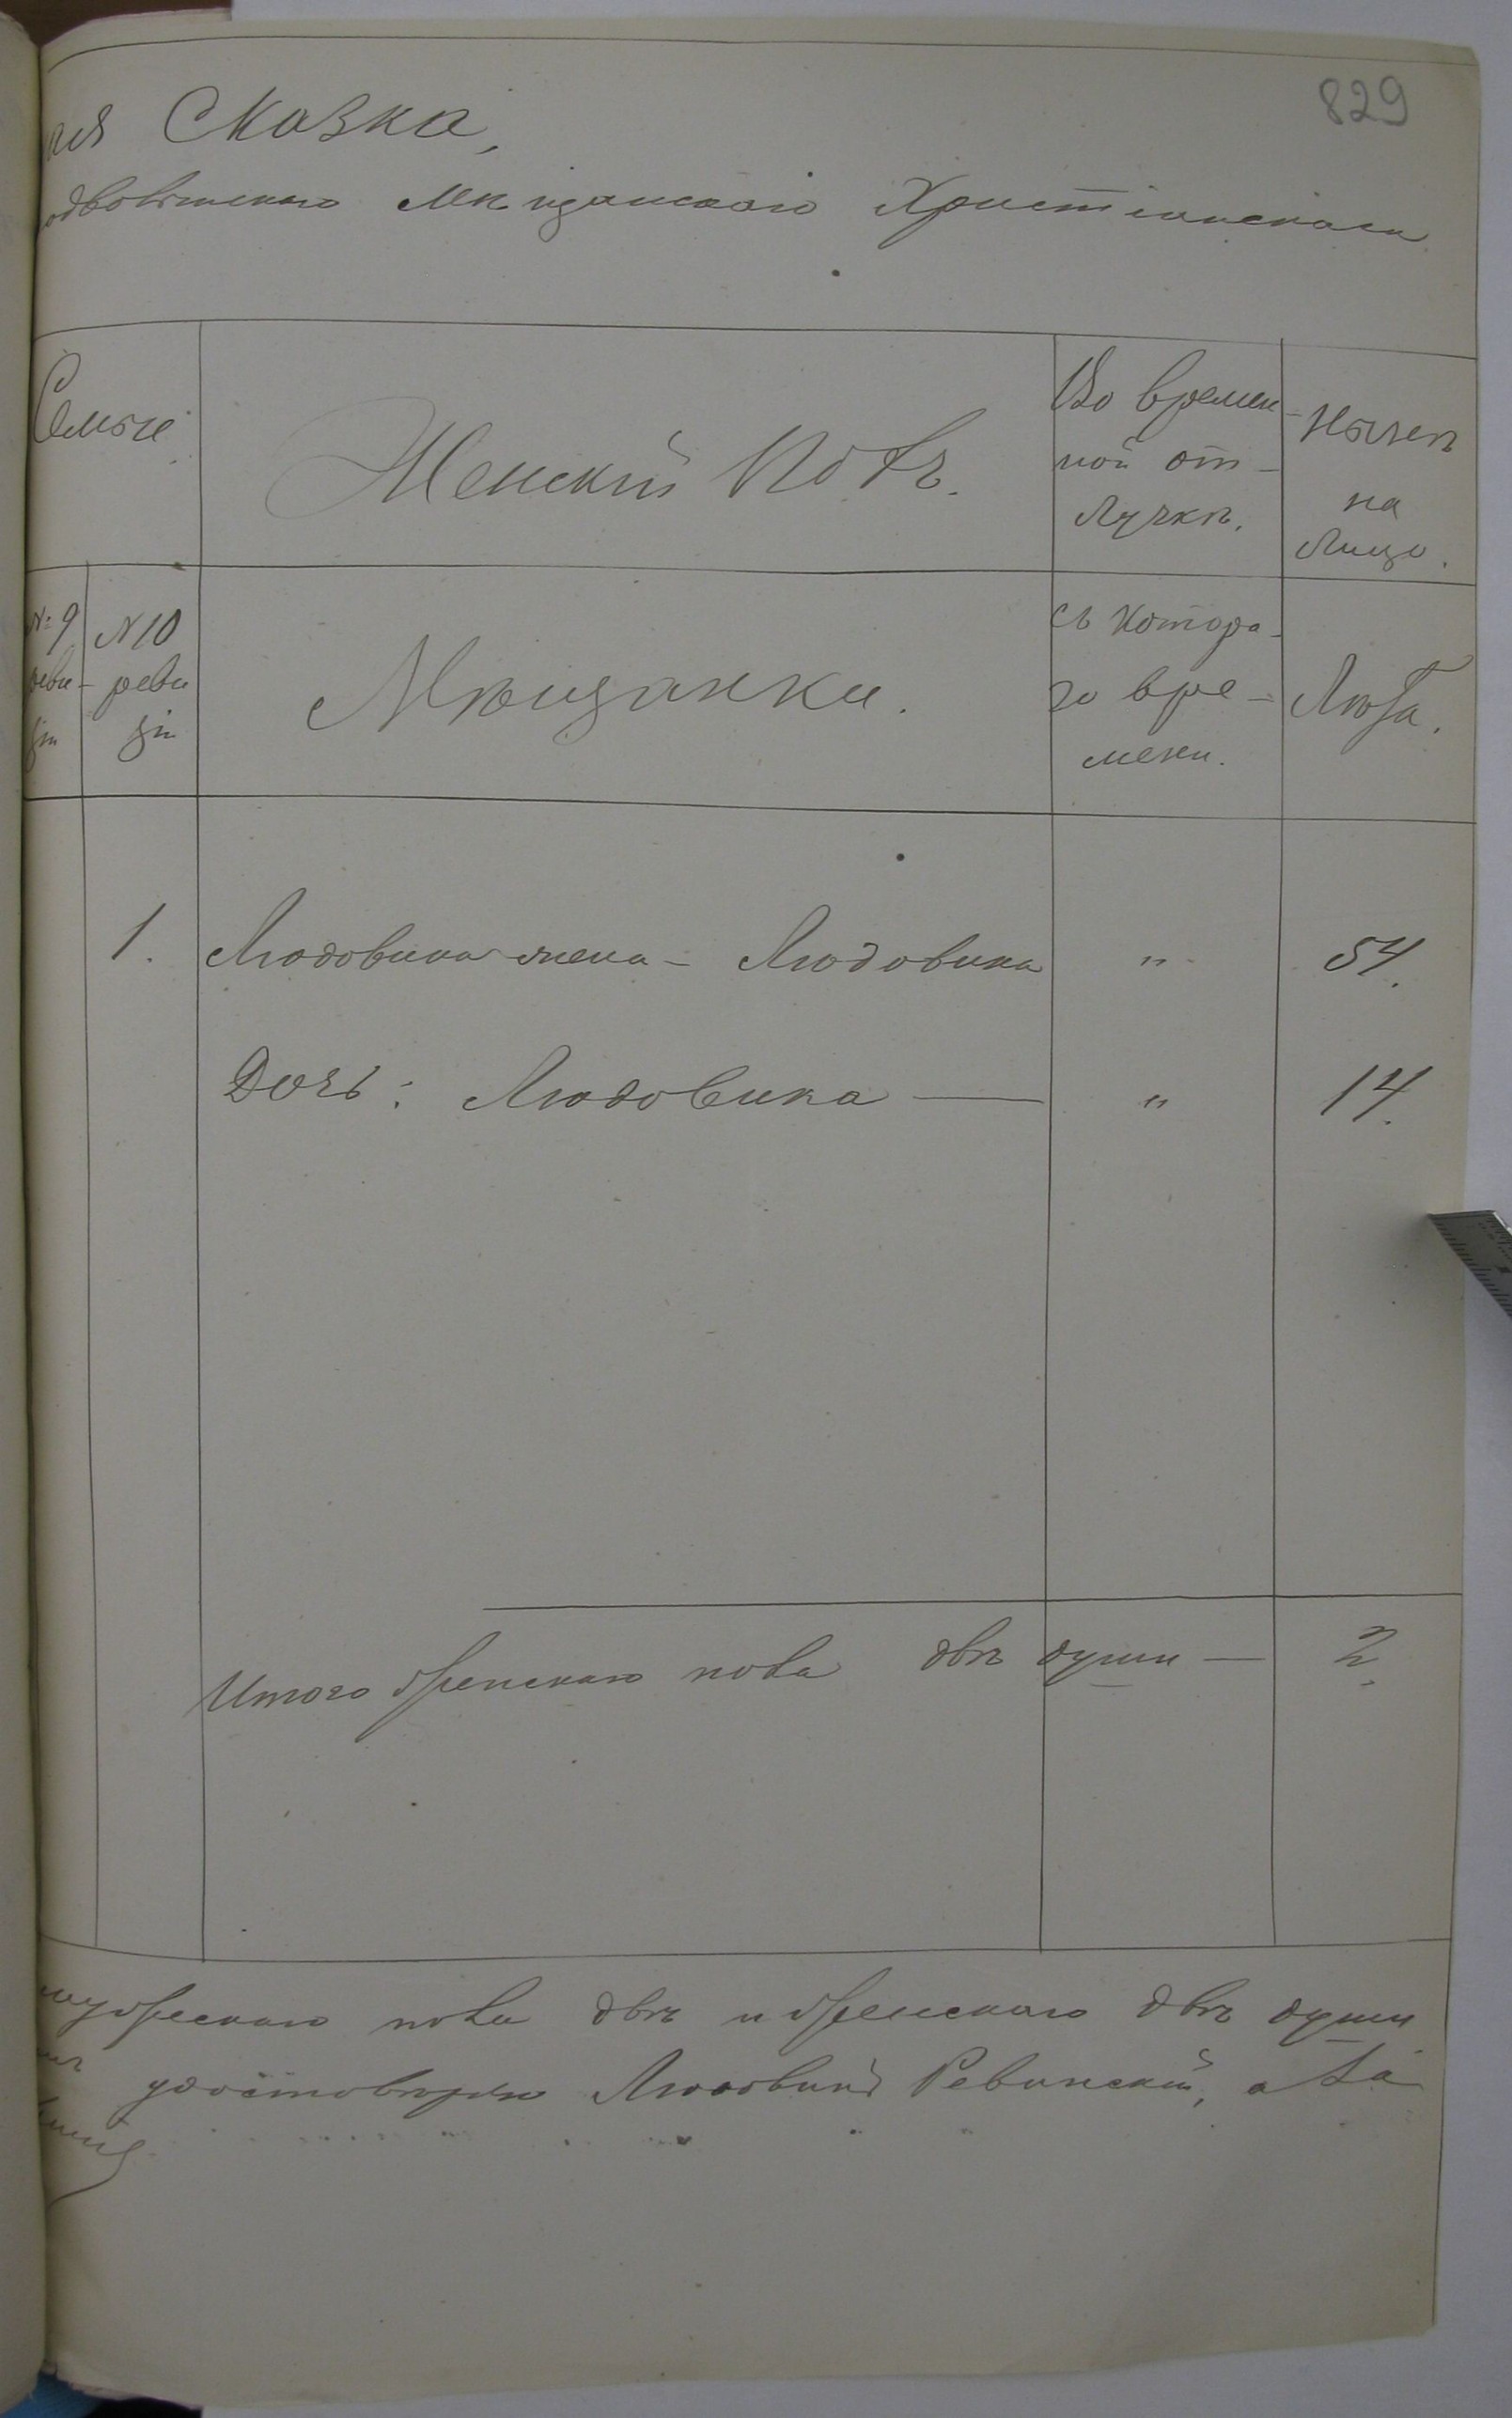 829
ная Сказка,
Мѣщанскаго Христіанскаго
Семьи
Женскій Полъ.
Во времен-
ной от-
лучкѣ.
Нынѣ
на
лицо.
№ 9
реви-
зіи
N 10
реви
зіи
Мѣщанки.
съ котора-
го вре-
мени.
Лѣта.
1. Людовика жена - Людовика " 54.
Дочь: Людовика — " 14.
Итого женскаго пола двѣ души — 2.
мужескаго пола двѣ и женскаго двѣ души
удостовѣряю Людовикъ Ревинскій, а за